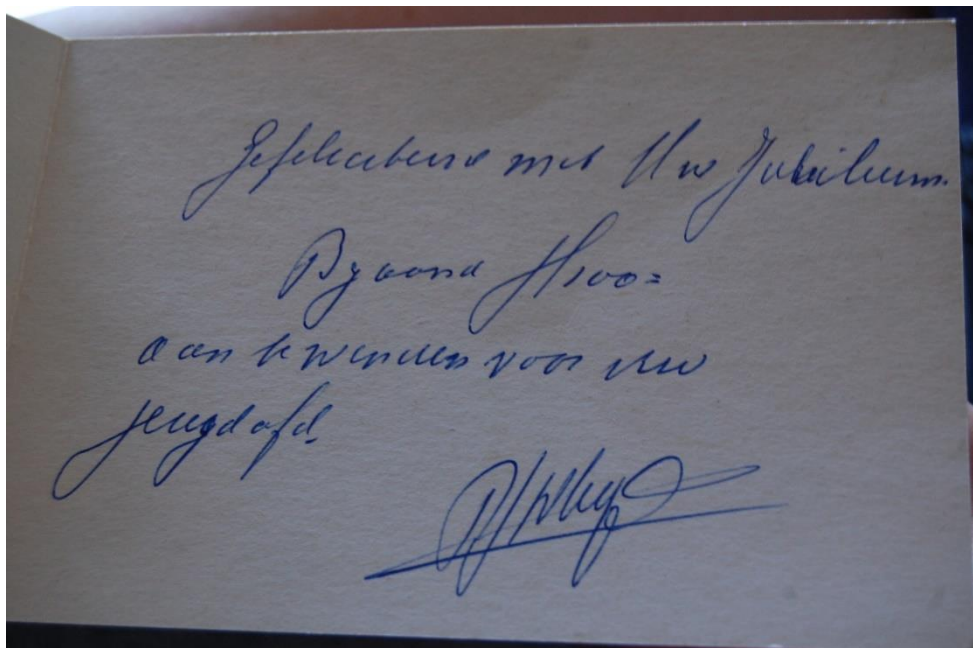 Gefeliciteerd met Uw Jubileum.
Bygaand
aan te wenden voor uw
jeugdafd.